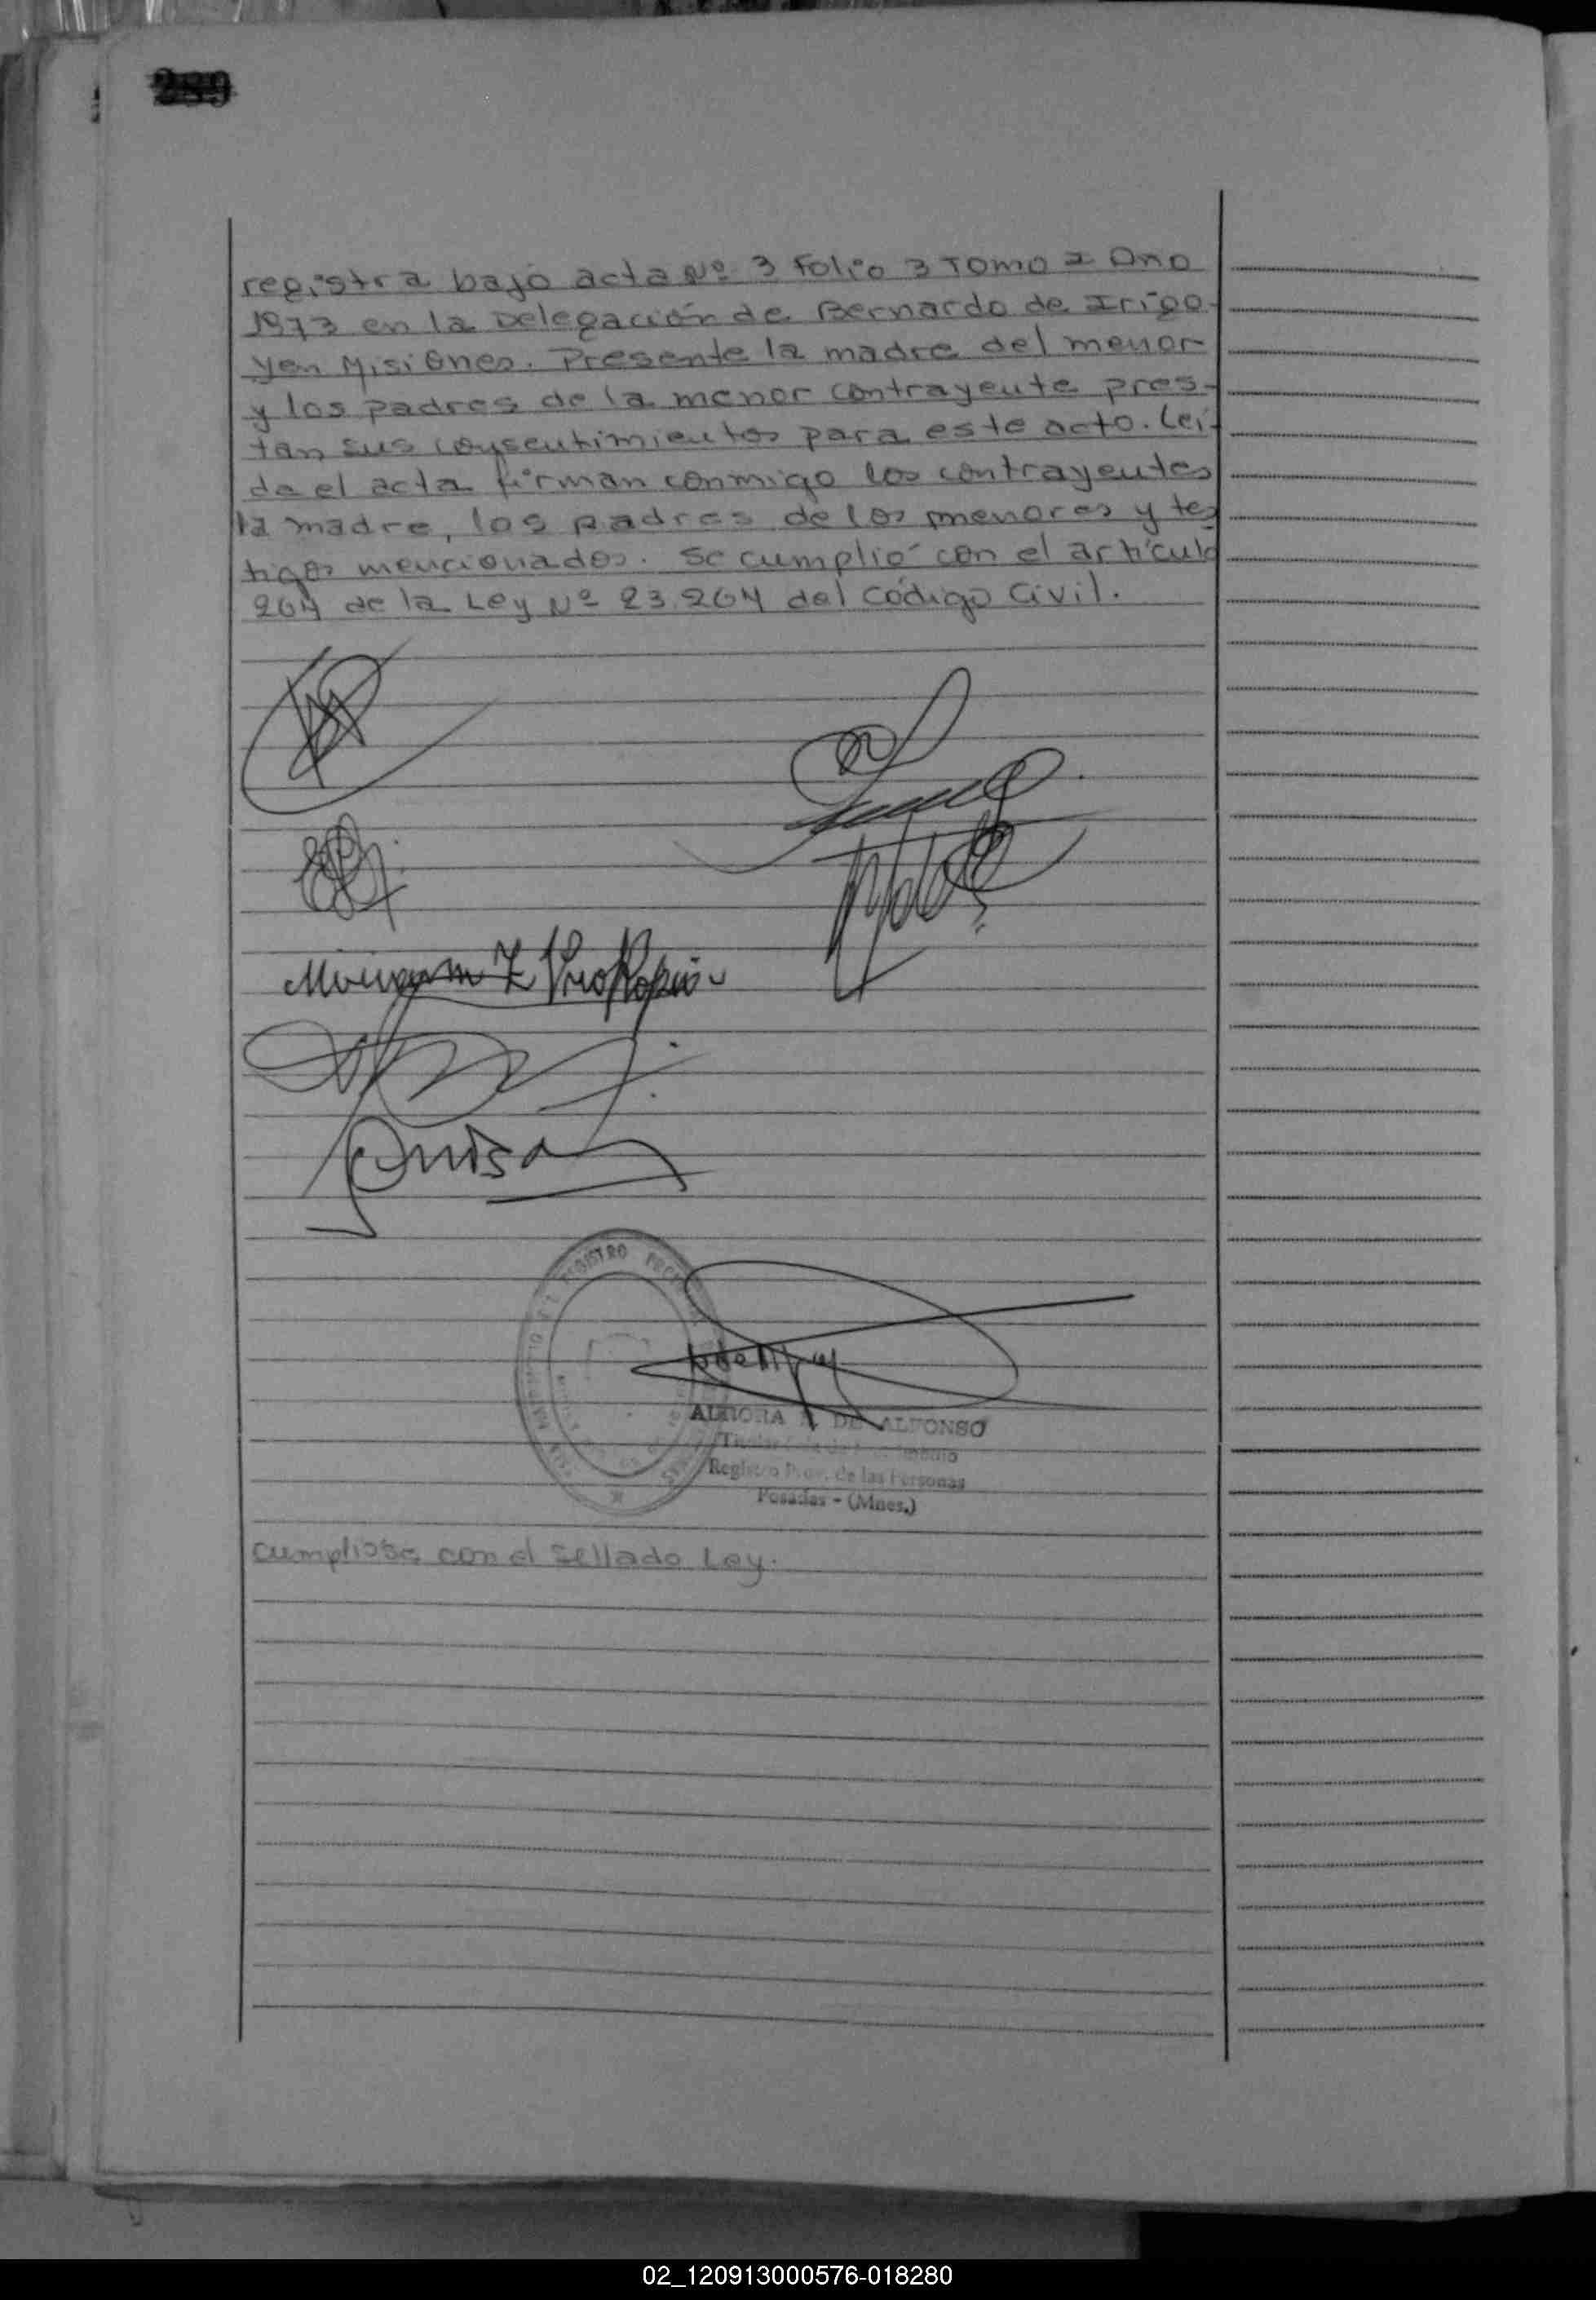 289
registra bajo acta Nº 3 Folio 3 Tomo I Año
1973 en la Delegación de Bernardo de Irigo-
yen Misiones. Presente la madre del menor
y los padres de la menor contrayente pres-
tan sus consentimientos para este acto. Leí-
da el acta firman conmigo los contrayentes
la madre, los padres de los menores y tes
tigos mencionados. Se cumplió con el artículo
264 de la Ley Nº 23.264 del Código Civil.
REGISTRO
DE ALFONSO
Registro Prov. de las Personas
Posadas - (Mnes.)
cumpliose con el sellado Ley.
02_120913000576-018280